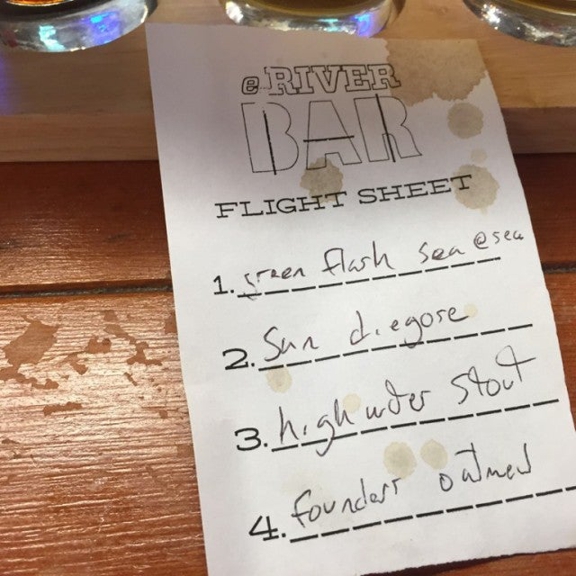 e RIVER
BAR
FLIGHT SHEET
1. green flash sea @ sea
2. San diegose
3. high water stout
4. founders oatmeal